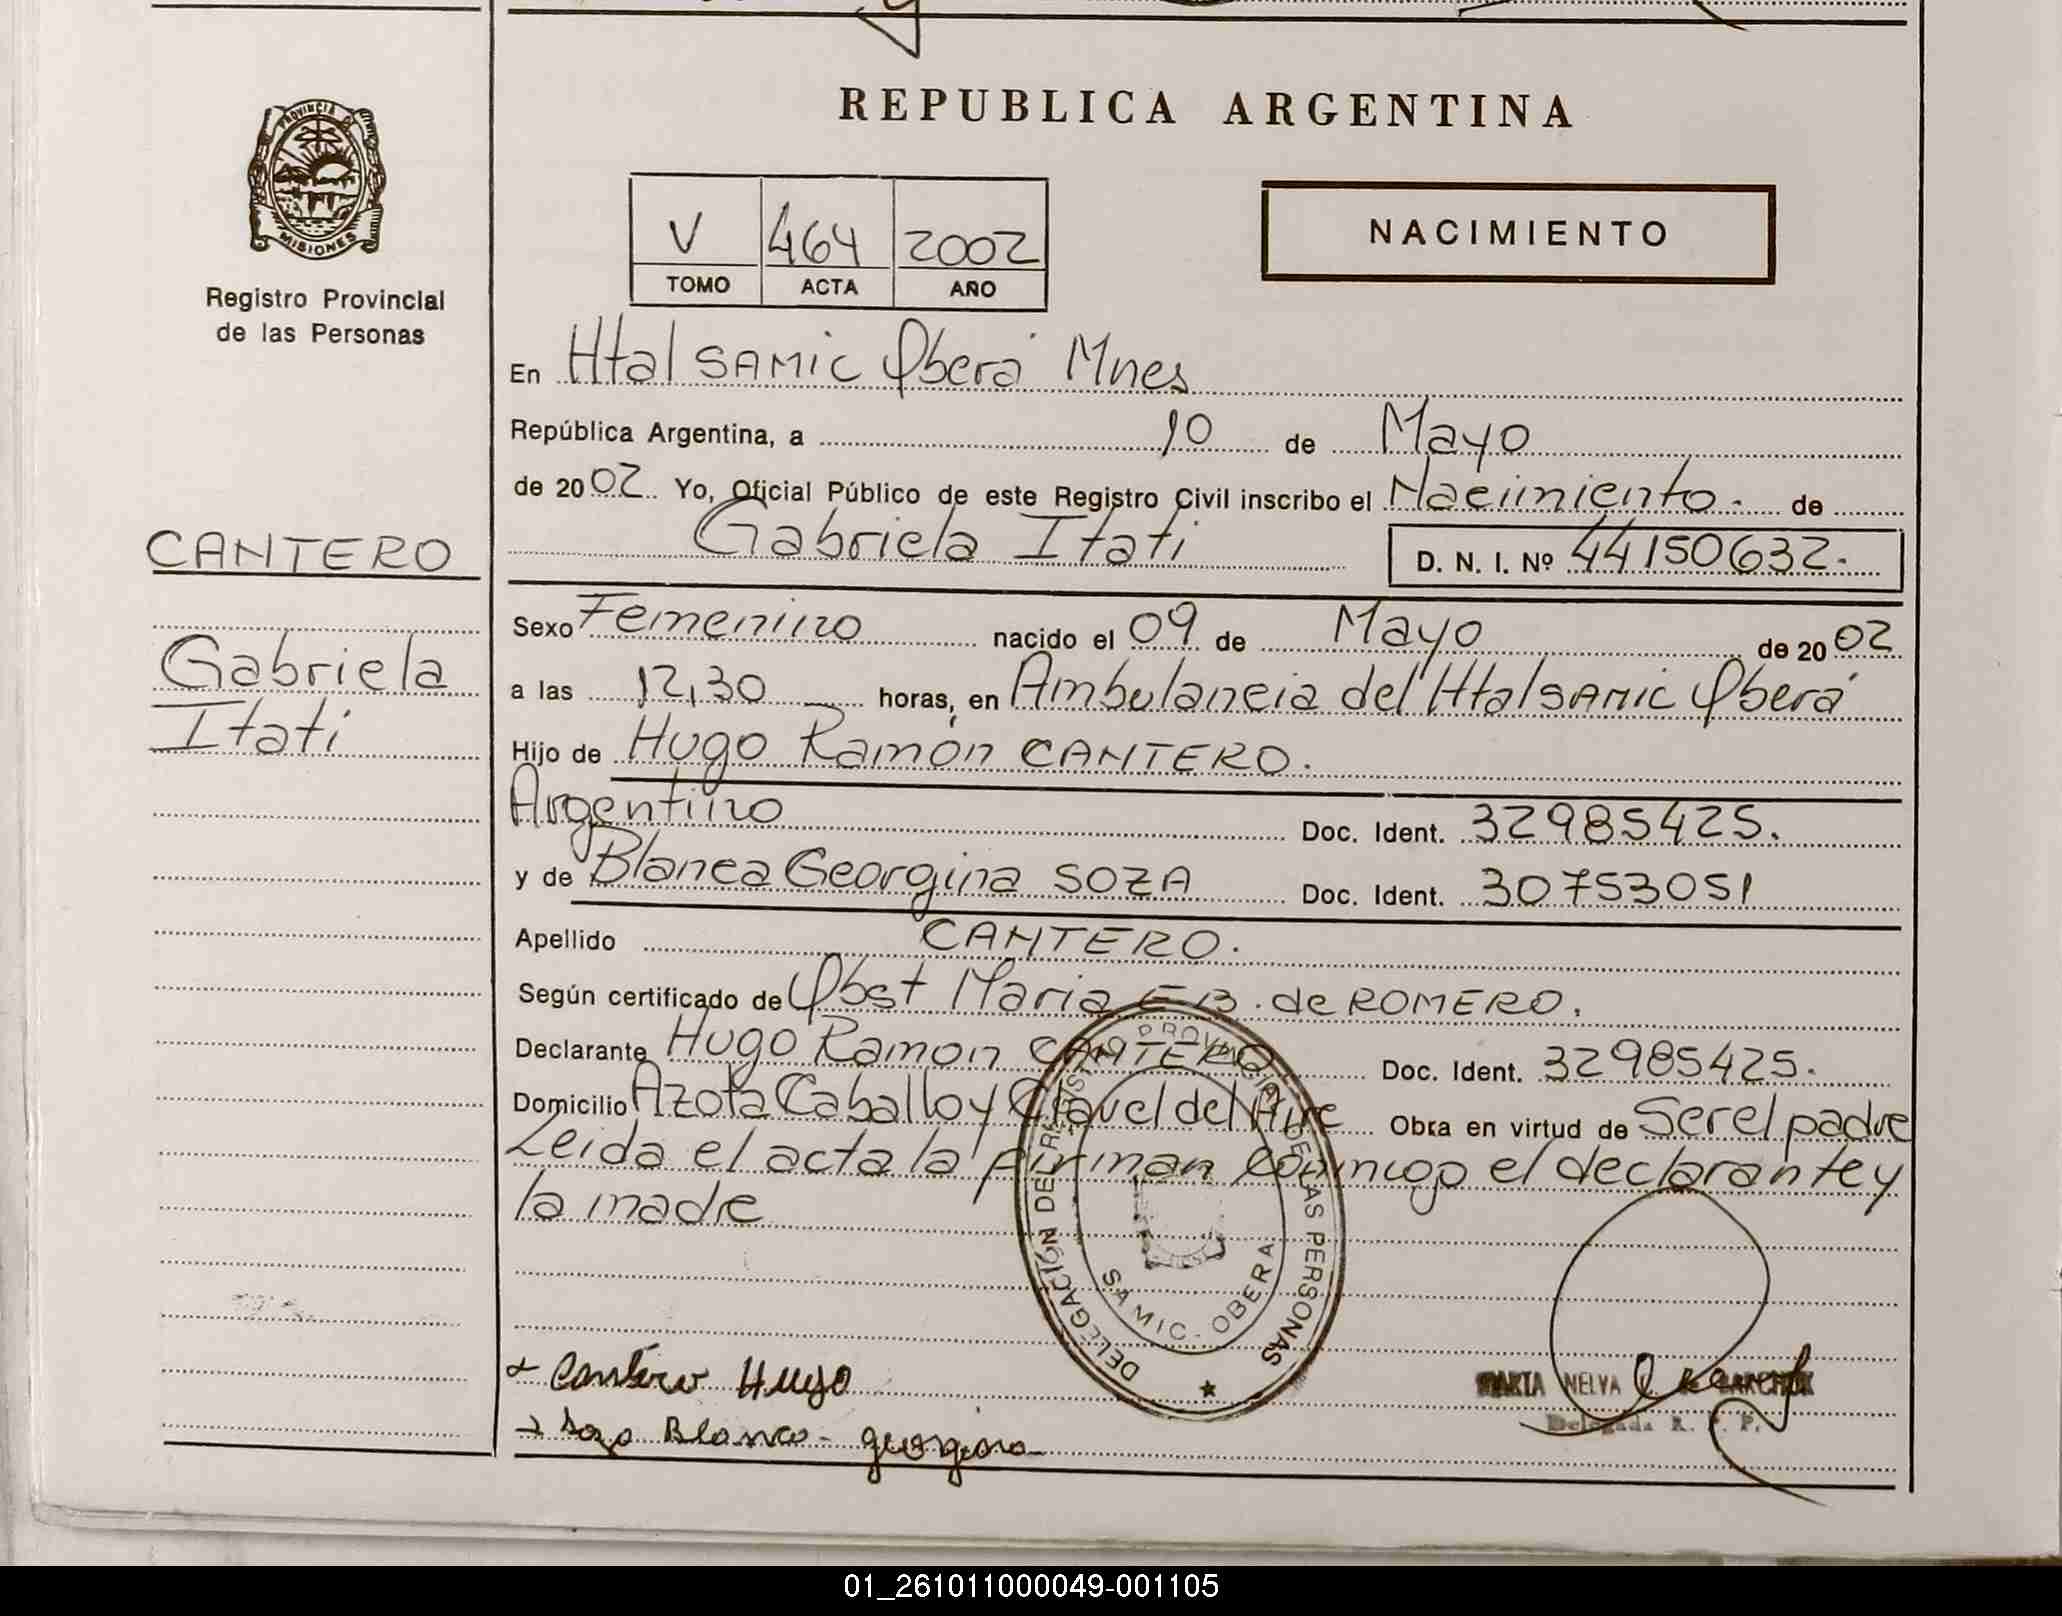 REPUBLICA ARGENTINA
PROVINCIA DE
MISIONES
Registro Provincial
de las Personas
V 464 2002
TOMO ACTA AÑO
NACIMIENTO
En Htal SAMIC Oberá Mnes
República Argentina, a 10 de Mayo
de 2002 Yo, Oficial Público de este Registro Civil inscribo el Nacimiento. de
Gabriela Itati
D. N. I. Nº 44150632.
CANTERO
Gabriela
Itati
Sexo Femenino nacido el 09 de Mayo de 2002
a las 12,30 horas, en Ambulancia del Htal SAMIC Oberá
Hijo de Hugo Ramón CANTERO.
Argentino Doc. Ident. 32985425.
y de Blanca Georgina SOZA Doc. Ident. 30753051
Apellido CANTERO.
Según certificado de Obst Maria E B. de ROMERO.
Declarante Hugo Ramon CANTERO Doc. Ident. 32985425.
Domicilio Azota Caballo y Clavel del Aire Obra en virtud de Ser el padre
Leida el acta la firman conmigo el declarante y
la madre
DELEGACIÓN DEL REGISTRO PROVINCIAL DE LAS PERSONAS
SAMIC - OBERA
Cantero Hugo
Soza Blanca - georgina
MARTA NELVA
Delegada R. P. P.
01_261011000049-001105